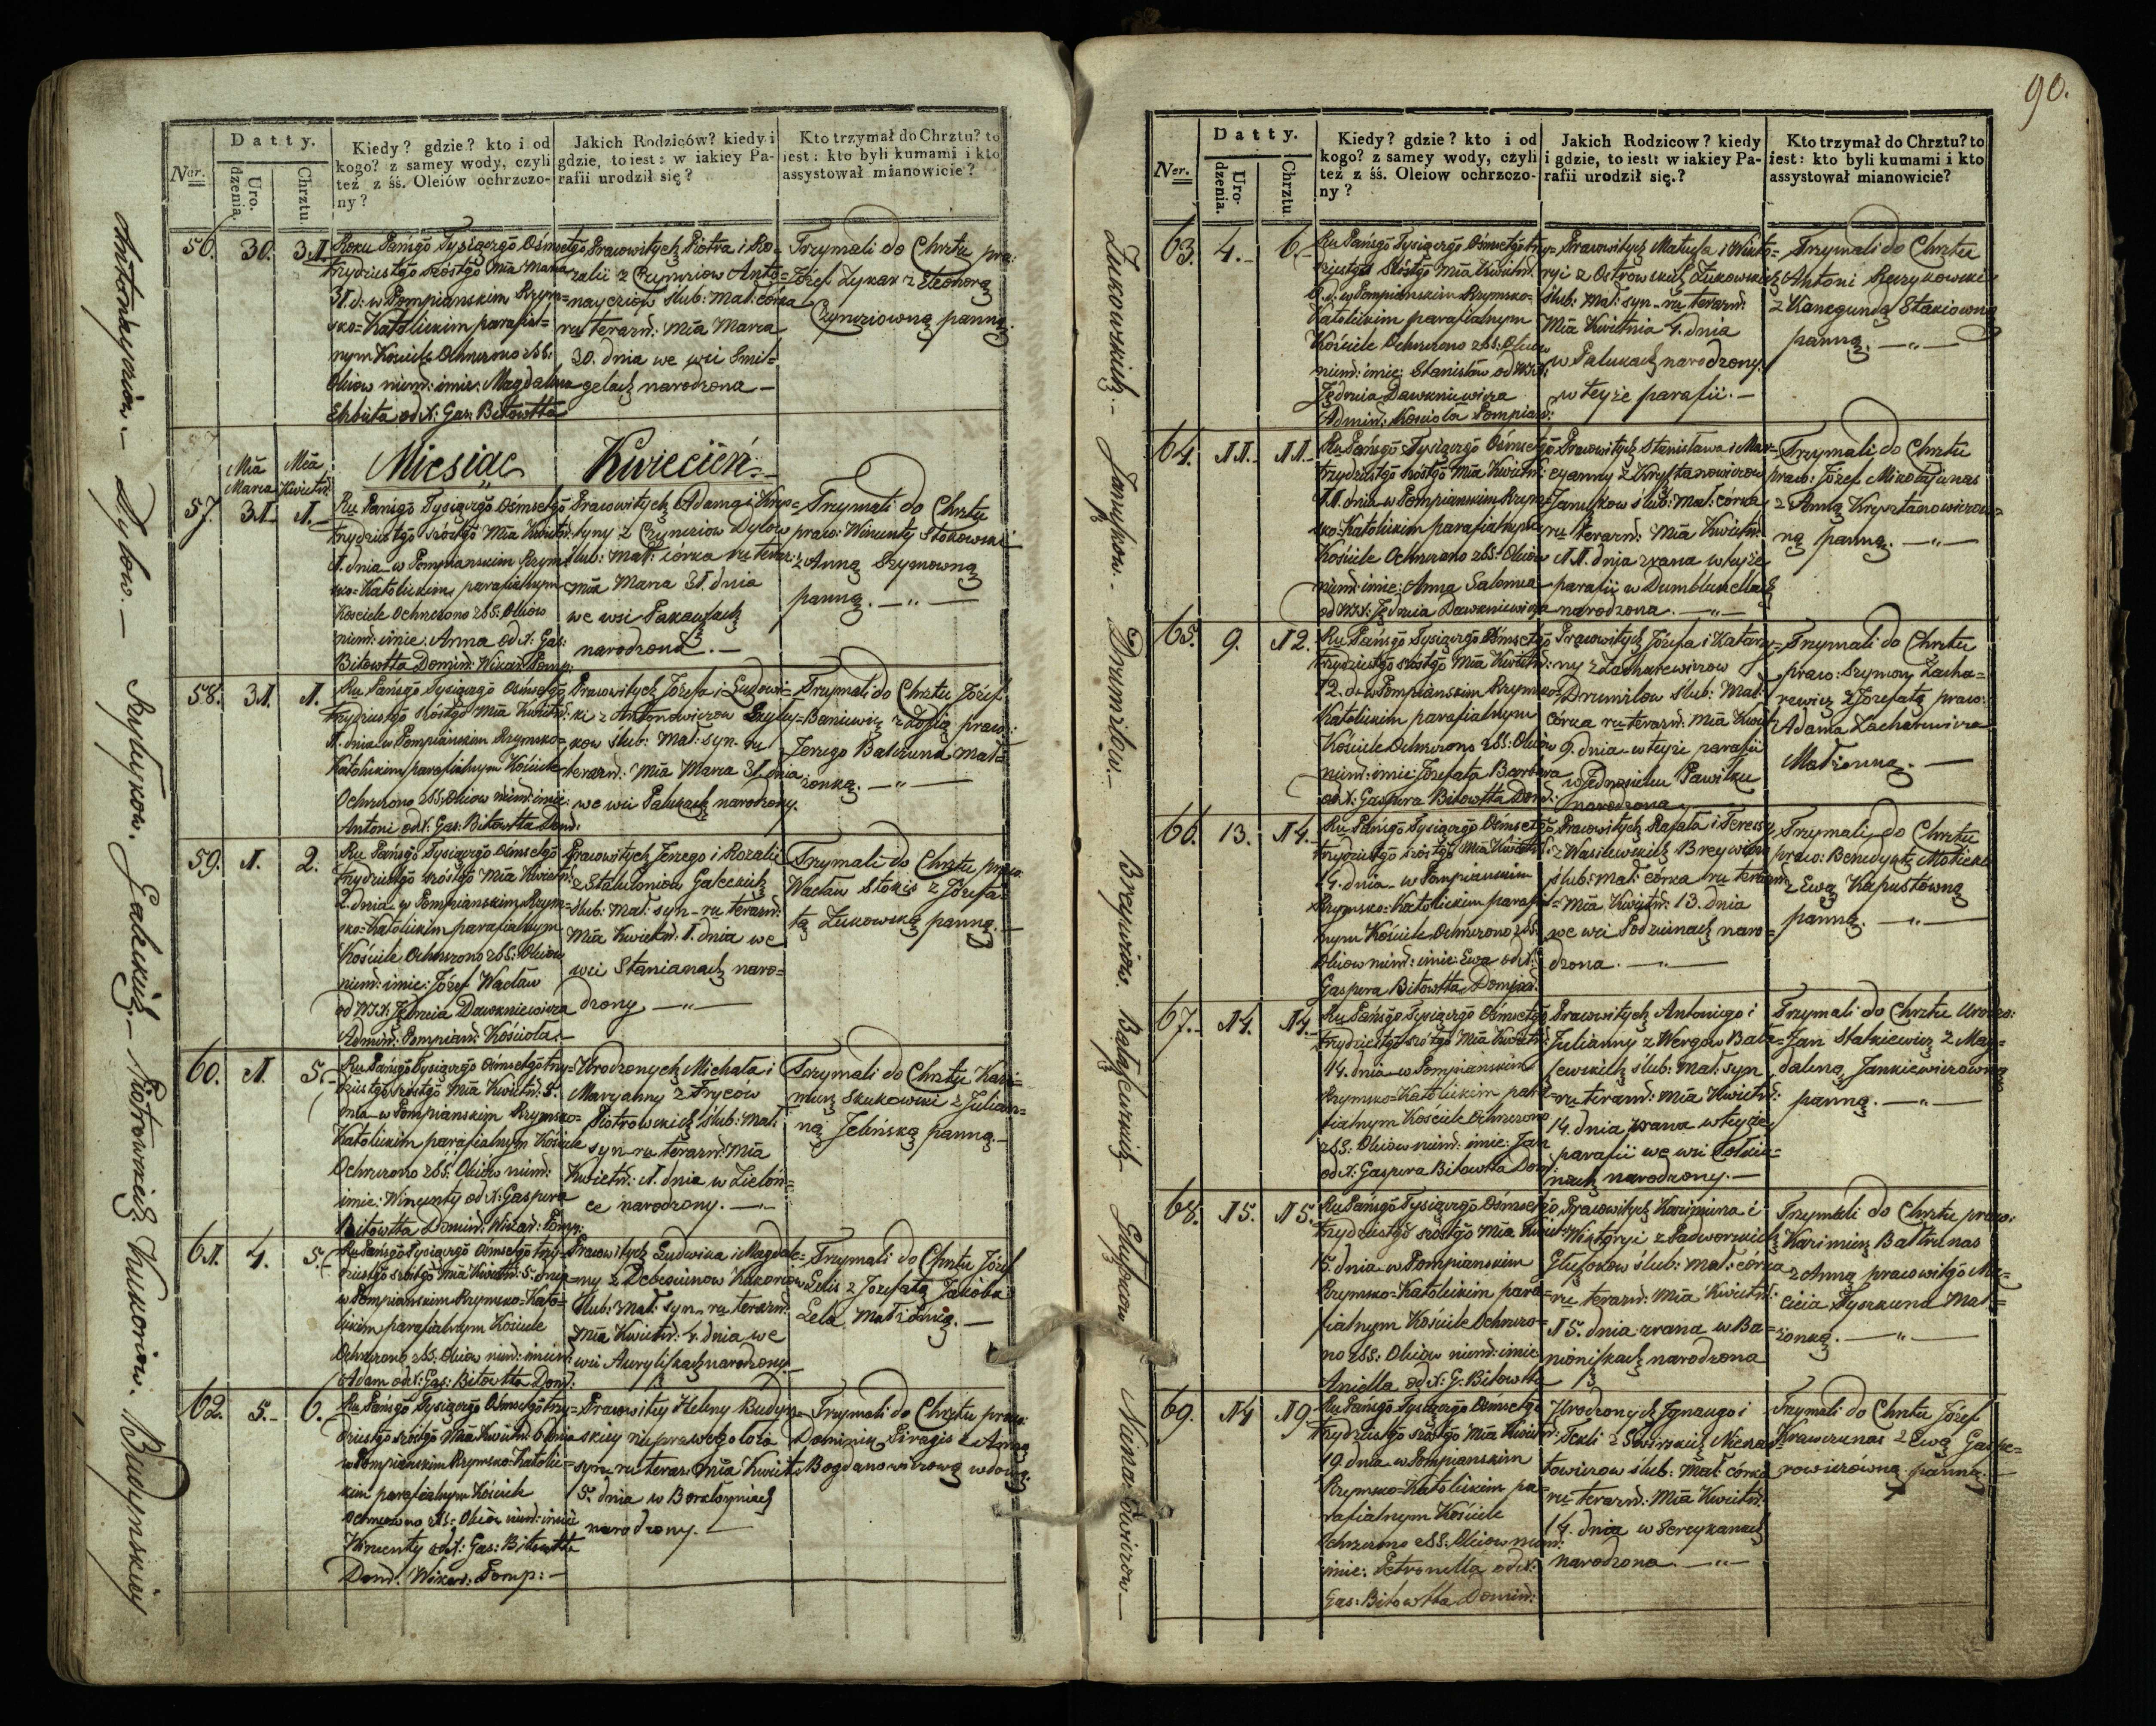 Datty.
Ner.
Uro-
dzenia.
Chrztu.
Kiedy? gdzie? kto i od
kogo? z samey wody, czyli
też z śś. Oleiow ochrzczo-
ny?
Jakich Rodziców? kiedy i
gdzie, to iest: w iakiey Pa-
rafii urodził się?
Kto trzymał do Chrztu? to
iest: kto byli kumami i kto
assystował mianowicie?
Antonayciow.—
Dylow.—
Szyleykow.
Galeckich.—
Piotrowskich.
Kukoriow.
Budynskiey
56. 30. 31.
Roku Pańsgō Tysiącżgō Ośmsetgō
trzydziestgō szóstgō Mīa Marca
31. d: w Pompianskim Rzym=
sko=Katolickim parafial=
nym Kościele Ochrzczono zśś:
Oleiow niem: imie: Magdalena
Elżbieta od X: Gas: Bitowtta
Pracowitych Piotra i Ro=
zalii z Czyncziow Anto=
nayciow ślub: Mał: córka
ru terazn: Mīa Marca
30. dnia we wsi Smil=
gelach narodzona —
Trzymali do Chrztu pra:
Józef Łykar z Eleonorą
Czyncziowną panną.
Mīa
Marca
Mīa
Kwietn:
Miesiąc Kwiecień
57. 31. 1.
Ru Pańsgō Tysiącżgō Ośmsetgō
trzydziestgō szóstgō Mīa Kwietn:
1. dnia w Pompianskim Rzym=
sko=Katolickim parafialnym
Kościele Ochrzczono zśś: Oleiow
niem: imie: Anna od X: Gas:
Bitowtta Domin: Wikar: Pomp:
Pracowitych Adama i Krys=
tyny z Czyncziow Dylow
ślub: Mał: córka ru teraz:
Mīa Marca 31. dnia
we wsi
narodzona.—
Trzymali do Chrztu
praco: Wincenty Stokowski
z Anną Szymowną
panną.—„—
58. 31. 1.
Ru Pańsgō Tysiącżgō Ośmsetgō
trzydziestgō szóstgō Mīa Kwietn:
1. dnia w Pompianskim Rzymsko=
Katolickim parafialnym Kościele
Ochrzczono zśś: Oleiow niem: imie:
Antoni od X: Gas: Bitowtta Domi:
Pracowitych Józefa i Ludowi=
ki z Antonowiczow Szyley=
kow ślub: Mał: syn ru
terazn: Mīa Marca 31. dnia
we wsi Palukach narodzony.
Trzymali do Chrztu Józef
Baniewicz z Zofią praco:
Jerzego Balczuna Mał=
żonką.—„—
59. 1. 2.
Ru Pańsgō Tysiącżgō Ośmsetgō
trzydziestgō szóstgō Mīa Kwietn:
2. dnia w Pompianskim Rzym=
sko=Katolickim parafialnym
Kościele Ochrzczono zśś: Oleiow
niem: imie: Józef Wacław
od WJX: Jędrzeia Dawkniewicza
Admin: Pompian: Kościoła.—
Pracowitych Jerzego i Rozalii
z Stabuloniow Galeckich
ślub: Mał: syn ru terazn:
Mīa Kwietn: 1. dnia we
wsi Stanianach naro=
dzony —„—
Trzymali do Chrztu praco:
Wacław Stokis z Józefa=
tą Żukowską panną.—
60. 1. 5.
Ru Pańsgō Tysiącżgō Ośmsetgō trzy=
dziestgō szóstgō Mīa Kwietn: 5.
dnia w Pompianskim Rzymsko=
Katolickim parafialnym Kościele
Ochrzczono zśś: Oleiow niem:
imie: Wincenty od X: Gaspera
Bitowtta Domin: Wikar: Pomp:
Urodzonych Michała i
Maryanny z Fryców
Piotrowskich ślub: Mał:
syn ru terazn: Mīa
Kwietn: 1. dnia w Zielon=
ce narodzony.—
Trzymali do Chrztu Kazi=
mierz Skukowski z Julian=
ną Jelińską panną.—
61. 4. 5.
Ru Pańsgō Tysiącżgō Ośmsetgō trzy=
dziestgō szóstgō Mīa Kwietn: 5. dnia
w Pompianskim Rzymsko=Kato=
lickim parafialnym Kościele
Ochrzczono zśś: Oleiow niem: imiem:
Adam od X: Gas: Bitowtta Domi:
Pracowitych Ludwika i Magdale=
ny z Kukoriow
ślub: Mał: syn ru terazn:
Mīa Kwietn: 4. dnia we
wsi narodzony
Trzymali do Chrztu Józef
Lelis z Jozefatą Jakóba
Lela Małżonką.—
62. 5. 6.
Ru Pańsgō Tysiącżgō Ośmsetgō trzy=
dziestgō szóstgō Mīa Kwietn: 6. dnia
w Pompianskim Rzymsko=Katolic=
kim parafialnym Kościele
Ochrzczono zśś: Oleiow niem: imie:
Wincenty od X: Gas: Bitowtta
Domi: Wikar: Pomp:—
Pracowitey Heleny Budyn=
skiey nieprawego łoża
syn ru teraz: Mīa Kwiet:
5. dnia w
narodzony.—
Trzymali do Chrztu praco:
Dominik Piragis z Anną
Bogdanowiczową wdową.
90.
Datty.
Ner.
Uro-
dzenia.
Chrztu
Kiedy? gdzie? kto i od
kogo? z samey wody, czyli
też z śś. Oleiow ochrzczo-
ny?
Jakich Rodzicow? kiedy
i gdzie, to iest: w iakiey Pa-
rafii urodził się.?
Kto trzymał do Chrztu? to
iest: kto byli kumami i kto
assystował mianowicie?
Żukowskich.—
Janeykow.—
Drumżlow.—
Breywiow.
Batajewskich
Głuszonow
Nienartowiczow—
63. 4. 6.
Ru Pańsgō Tysiącżgō Ośmsetgō trzy=
dziestgō szóstgō Mīa Kwietn:
6. d. w Pompianskim Rzymsko=
Katolickim parafialnym
Kościele Ochrzczono zśś: Oleiow
niem: imie: Stanisław od WJX:
Jędrzeia Dawkniewicza
Admin: Kościoła Pompian:
Pracowitych Mateusza i Wikto=
ryi z Ostrowskich Żukowskich
ślub: Mał: syn ru terazn:
Mīa Kwietnia 4. dnia
w Palukach narodzony
w teyże parafii.—
Trzymali do Chrztu
Antoni
z Kunegundą Stakiowną
panną.—„—
64. 11. 11.
Ru Pańsgō Tysiącżgō Ośmsetgō
trzydziestgō szóstgō Mīa Kwietn:
11. dnia w Pompianskim Rzym=
sko=Katolickim parafialnym
Kościele Ochrzczono zśś: Oleiow
niem: imie: Anna Salomea
od WJX: Jędrzeia Dawkniewicza
Pracowitych Stanisława i Mar=
cyanny z Krysztanowiczow
Janeykow ślub: Mał: córka
ru terazn: Mīa Kwietn:
11. dnia zrana w teyże
parafii w
narodzona.—„—
Trzymali do Chrztu
praco: Józef Mikołajunas
z Anną Krysztanowiczow=
ną panną.—„—
65. 9. 12.
Ru Pańsgō Tysiącżgō Ośmsetgō
trzydziestgō szóstgō Mīa Kwietn:
12. d. w Pompianskim Rzymsko=
Katolickim parafialnym
Kościele Ochrzczono zśś: Oleiow
niem: imie: Józefata Barbara
od X: Gaspera Bitowtta Domi:
Pracowitych Józefa i Katarzy=
ny z Zacharewiczow
Drumżlow ślub: Mał:
córka ru terazn: Mīa Kwiet:
9. dnia w teyże parafii
w Jednosielu Pawilku
narodzona
Trzymali do Chrztu
praco: Szymon Zacha=
rewicz z Jozefatą praco:
Adama Zacharewicza
Małżonką.—
66. 13. 14.
Ru Pańsgō Tysiącżgō Ośmsetgō
trzydziestgō szóstgō Mīa Kwietn:
14. dnia w Pompianskim
Rzymsko=Katolickim parafial=
nym Kościele Ochrzczono zśś:
Oleiow niem: imie: Ewa od X:
Gaspera Bitowtta Domin:
Pracowitych Rafała i Teressy
z Wasilewskich Breywiow
ślub: Mał: córka ru terazn:
Mīa Kwietn: 13. dnia
we wsi Podziunach naro=
dzona.—„—
Trzymali do Chrztu
praco: Benedykt
z Ewą Kapustowną
panną.—„—
67. 14. 14.
Ru Pańsgō Tysiącżgō Ośmsetgō
trzydziestgō szóstgō Mīa Kwietn:
14. dnia w Pompianskim
Rzymsko=Katolickim para=
fialnym Kościele Ochrzczono
zśś: Oleiow niem: imie: Jan
od X: Gaspera Bitowtta Domi:
Pracowitych Antoniego i
Julianny z Wergow Bata=
jewskich ślub: Mał: syn
ru terazn: Mīa Kwietn:
14. dnia zrana w teyże
parafii we wsi
narodzony.—
Trzymali do Chrztu Urodzo:
Jan Statkiewicz z Mag=
daleną Jankiewiczowną
panną.—„—
68. 15. 15.
Ru Pańsgō Tysiącżgō Ośmsetgō
trzydziestgō szóstgō Mīa Kwiet:
15. dnia w Pompianskim
Rzymsko=Katolickim para=
fialnym Kościele Ochrzczo=
no zśś: Oleiow niem: imie:
Aniella od X: G: Bitowtta
Pracowitych Kazimierza i
Wiktoryi z Padworskich
Głuszonow ślub: Mał: córka
ru terazn: Mīa Kwietn:
15. dnia zrana w Ba=
nioniszkach narodzona
Trzymali do Chrztu praco:
Kazimierz Baltrunas
z Anną pracowitego Ma=
cieia Tyszkuna Mał=
żonką.—„—
69. 14 19
Ru Pańsgō Tysiącżgō Ośmsetgō
trzydziestgō szóstgō Mīa Kwietn:
19. dnia w Pompianskim
Rzymsko=Katolickim pa=
rafialnym Kościele
Ochrzczono zśś: Oleiow niem:
imie: Petronella od X:
Gas: Bitowtta Domin:
Urodzonych Ignacego i
Tekli z Swirskich Nienar=
towiczow ślub: Mał: córka
ru terazn: Mīa Kwietn:
14. dnia w Sereykanach
narodzona.—„—
Trzymali do Chrztu Józef
Krawczunas z Ewą Gaspe=
rowiczówną panną.—